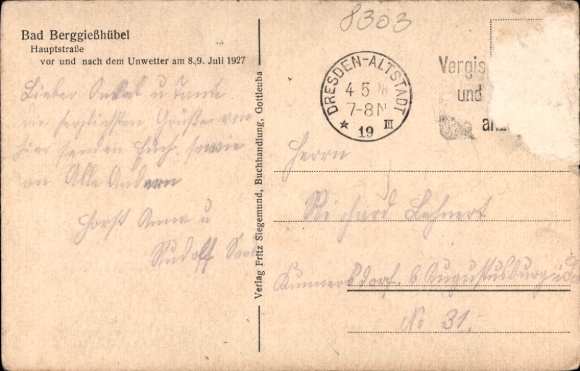 8303
Bad Berggießhübel
Hauptstraße
vor und nach dem Unwetter am 8./9. Juli 1927
Lieber Onkel u Tante
die herzlichsten Grüße von
hier senden Euch sowie
an Alle Andern
Horst Anna u
Rudolf
Verlag Fritz Siegemund, Buchhandlung, Gottleuba
DRESDEN-ALTSTADT
4 5
7-8 N
★ 19 III
Vergis
und
an
Herrn
Richard Lehnert
Kunnersdorf b Augustusburg
No 31.